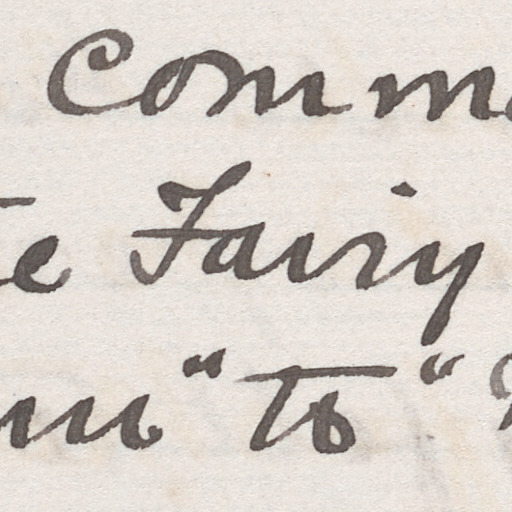 Comm
te Fairy
" to "